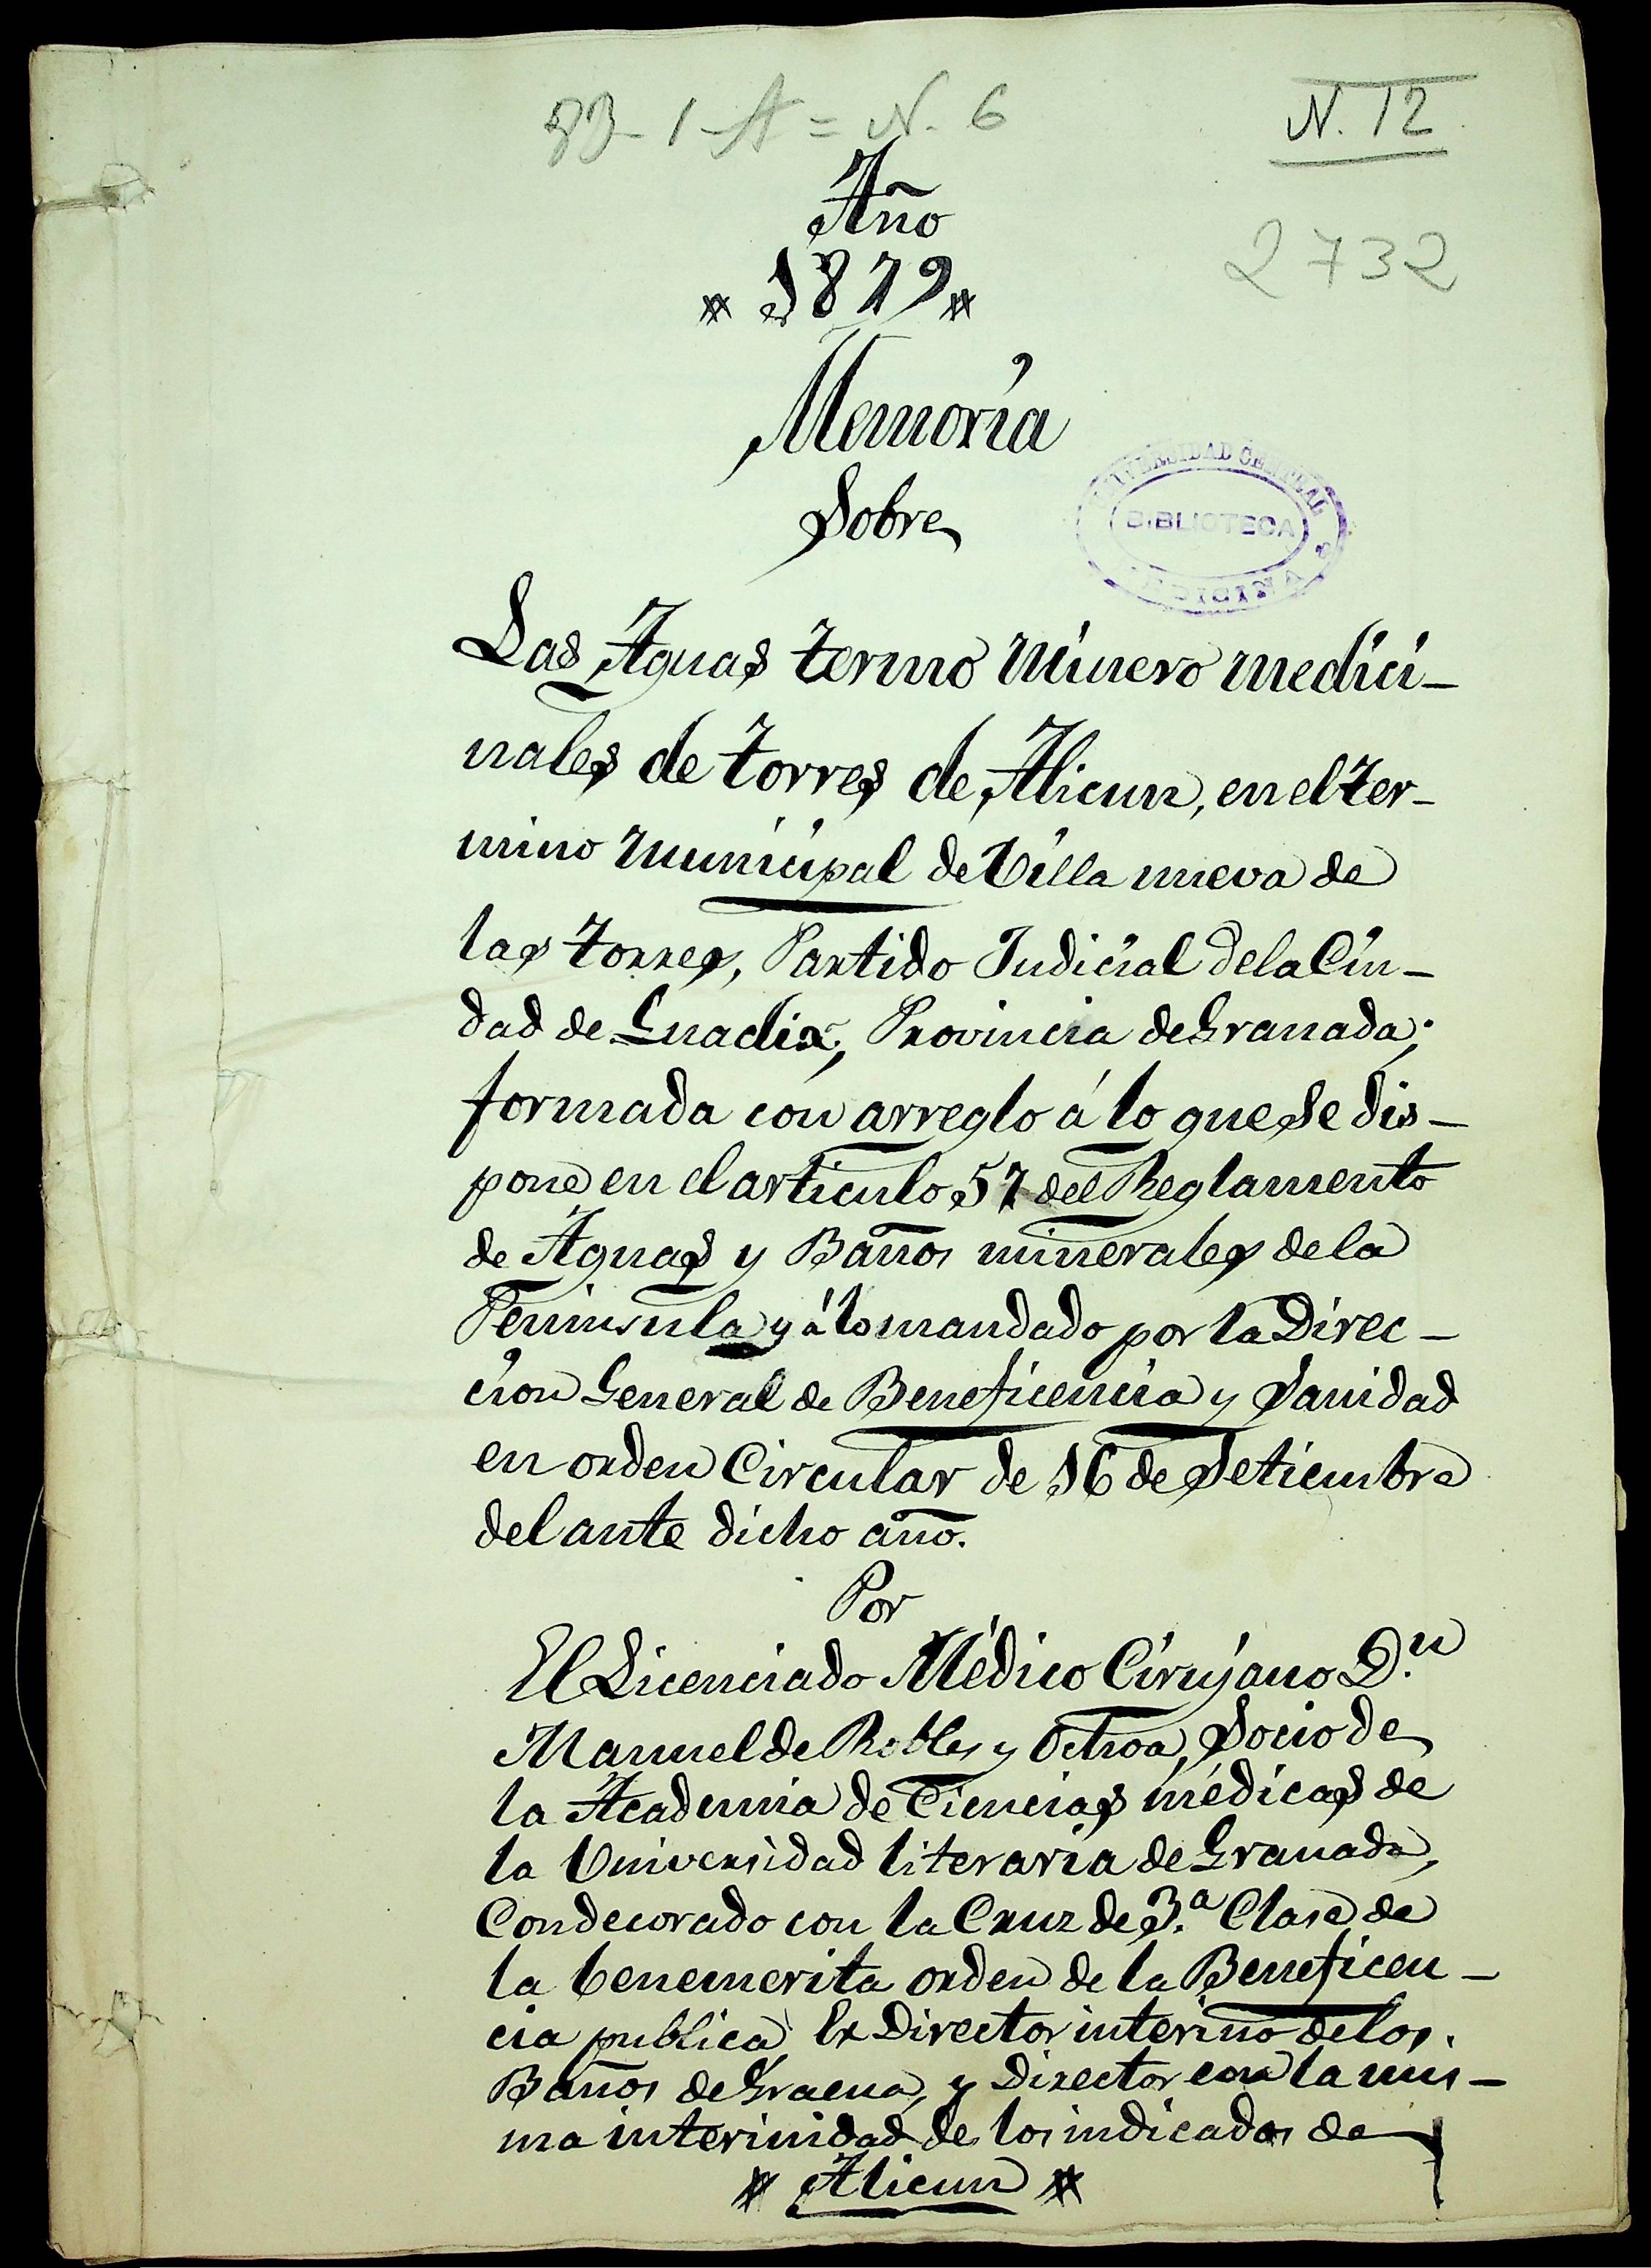 33-1-A = N. 6
N. 12
2732
Año
1879
Memoria
Sobre
UNIVERSIDAD CENTRAL
BIBLIOTECA
MEDICINA
Las Aguas termo Minero medici-
nales de torres de Alicun, en el ter-
mino Municipal de Villa nueva de
las torres, Partido Judicial de la Ciu-
dad de Guadix, Provincia de Granada;
formada con arreglo á lo que se dis-
pone en el articulo 57 del Reglamento
de Aguas y Baños minerales de la
Peninsula y á lo mandado por la Direc-
cion General de Beneficencia y Sanidad
en orden Circular de 16 de Setiembre
del ante dicho año.
Por
El Licenciado Médico Cirujano D.n
Manuel de Robles y Ochoa, Socio de
la Academia de Ciencias médicas de
la Universidad literaria de Granada,
Condecorado con la Cruz de 3.a Clase de
la benemerita orden de la Beneficen-
cia publica, Ex Director interino de los
Baños de Graena, y Director con la mis-
ma interinidad de los indicados de
Alicun